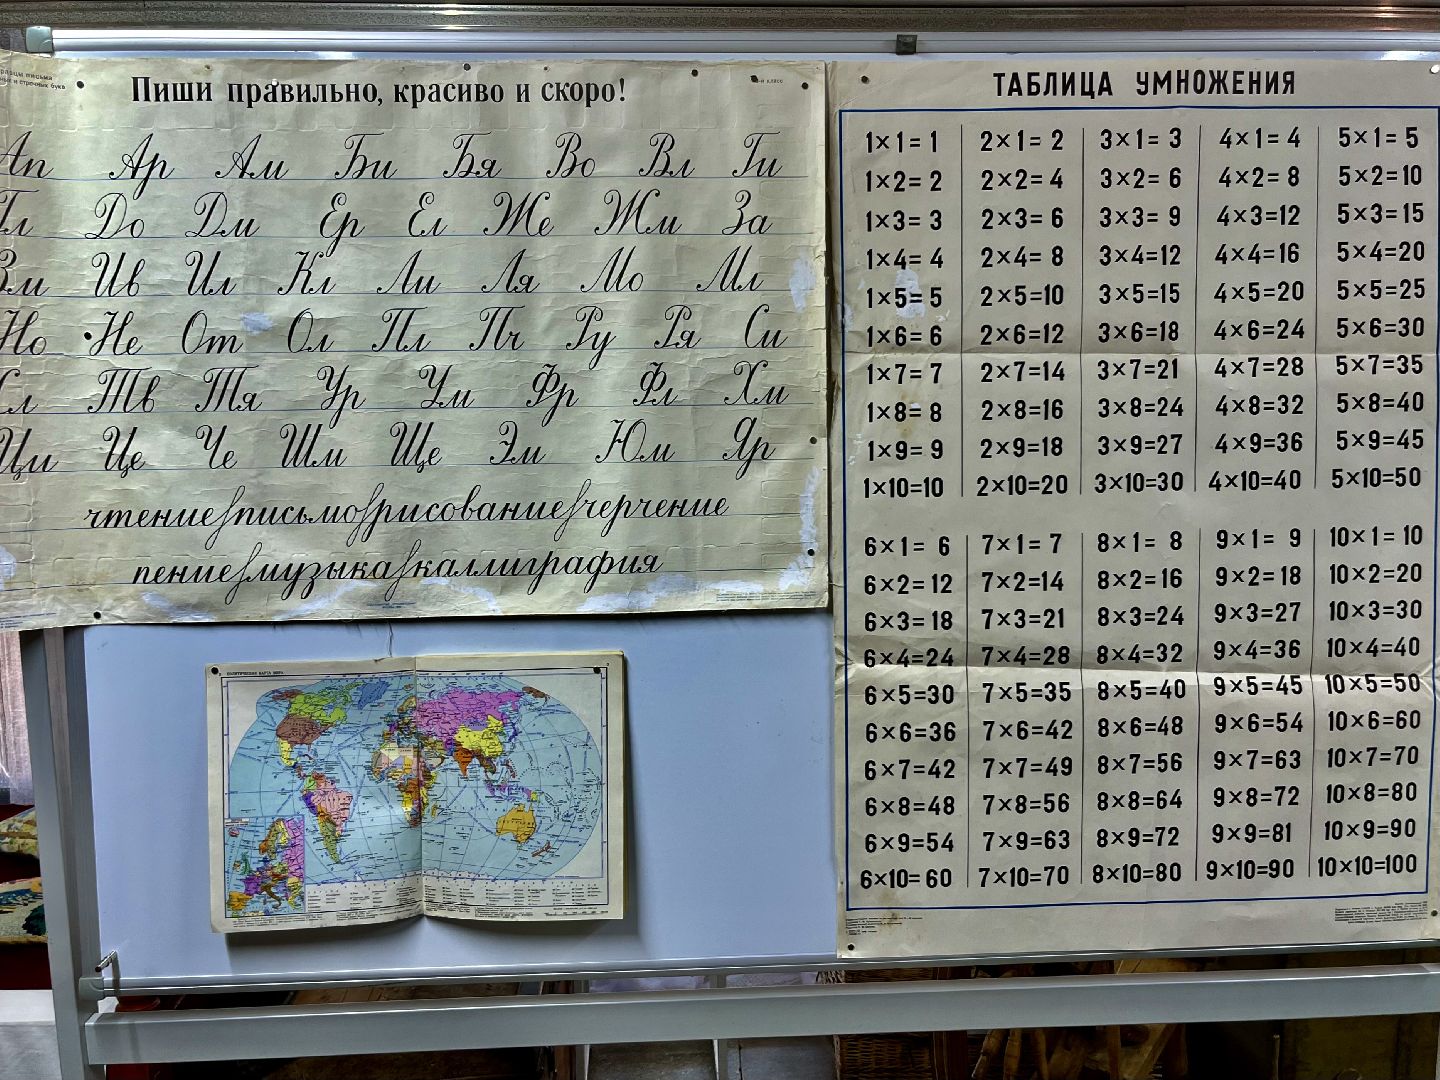 Пиши правильно, красиво и скоро!
Ап Ар Ам Би Бя Во Вл Ги
Гл До Дм Ер Ел Же Жм За
Зм Ив Ил Кл Ли Ля Мо Мл
Но Не От Ол Пл Пч Ру Ря Си
Сл Тв Тя Ур Ум Фр Фл Хм
Ци Це Че Шм Ще Эм Юм Яр
чтение письмо рисование черчение
пение музыка каллиграфия
ПОЛИТИЧЕСКАЯ КАРТА МИРА
ТАБЛИЦА УМНОЖЕНИЯ
1×1=1 2×1=2 3×1=3 4×1=4 5×1=5
1×2=2 2×2=4 3×2=6 4×2=8 5×2=10
1×3=3 2×3=6 3×3=9 4×3=12 5×3=15
1×4=4 2×4=8 3×4=12 4×4=16 5×4=20
1×5=5 2×5=10 3×5=15 4×5=20 5×5=25
1×6=6 2×6=12 3×6=18 4×6=24 5×6=30
1×7=7 2×7=14 3×7=21 4×7=28 5×7=35
1×8=8 2×8=16 3×8=24 4×8=32 5×8=40
1×9=9 2×9=18 3×9=27 4×9=36 5×9=45
1×10=10 2×10=20 3×10=30 4×10=40 5×10=50
6×1=6 7×1=7 8×1=8 9×1=9 10×1=10
6×2=12 7×2=14 8×2=16 9×2=18 10×2=20
6×3=18 7×3=21 8×3=24 9×3=27 10×3=30
6×4=24 7×4=28 8×4=32 9×4=36 10×4=40
6×5=30 7×5=35 8×5=40 9×5=45 10×5=50
6×6=36 7×6=42 8×6=48 9×6=54 10×6=60
6×7=42 7×7=49 8×7=56 9×7=63 10×7=70
6×8=48 7×8=56 8×8=64 9×8=72 10×8=80
6×9=54 7×9=63 8×9=72 9×9=81 10×9=90
6×10=60 7×10=70 8×10=80 9×10=90 10×10=100